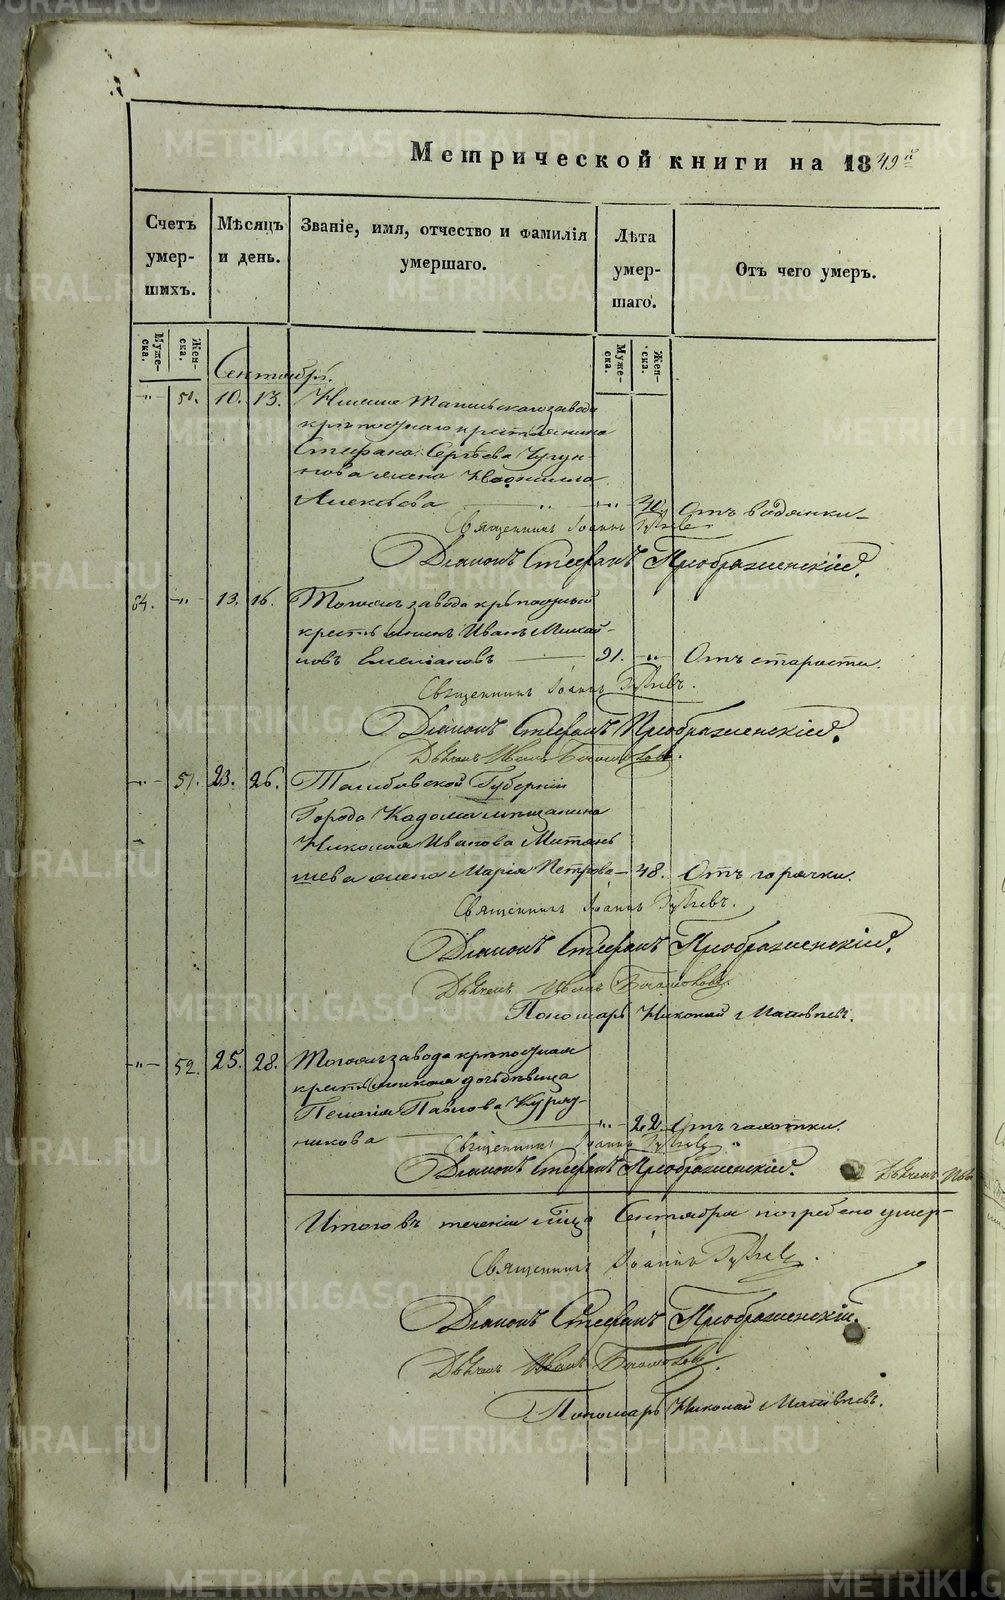 Метрической книги на 1849й
Счетъ умер-шихъ.
Мѣсяцъ и день.
Званіе, имя, отчество и фамилія умершаго.
Лѣта умер-шаго.
Отъ чего умеръ.
Муже-ска.
Жен-ска.
Муже-ска.
Жен-ска.
Сентябрь.
51. 10. 13. Нижне Тагильскаго завода
крѣпостнаго крестьянина
Стефана Сергѣева Чугун-
нова жена
Алексѣева Отъ водянки
Священникъ Іоаннъ
Діаконъ Стефанъ Преображенскій.
54. „ 13. 16. Тогожъ завода крѣпостный
крестьянинъ Иванъ Михай-
ловъ Емельяновъ 91. „ Отъ старости.
Священникъ Іоаннъ
Діаконъ Стефанъ Преображенскій.
Дьячекъ Иванъ
„ 51. 23. 26. Тамбовской Губерніи
Города Кадома мѣщанина
Николая Иванова Митянь
шева жена Марія Петрова 48. Отъ горячки.
Священникъ Іоаннъ
Діаконъ Стефанъ Преображенскій.
Дьячекъ Иванъ
Пономарь Николай Матвѣевъ.
„ 52. 25. 28. Тогожъ завода крѣпостная
крестьянская дочь дѣвица
Пелагія Павлова
„ 22. Отъ чахотки.
Священникъ Іоаннъ
Діаконъ Стефанъ Преображенскій. Дьячекъ Ива
Итого въ теченіи мѣсяца Сентября погребено умер-
Священникъ Іоаннъ
Діаконъ Стефанъ Преображенскій.
Дьячекъ Иванъ
Пономарь Николай Матвѣевъ.
METRIKI.GASO-URAL.RU